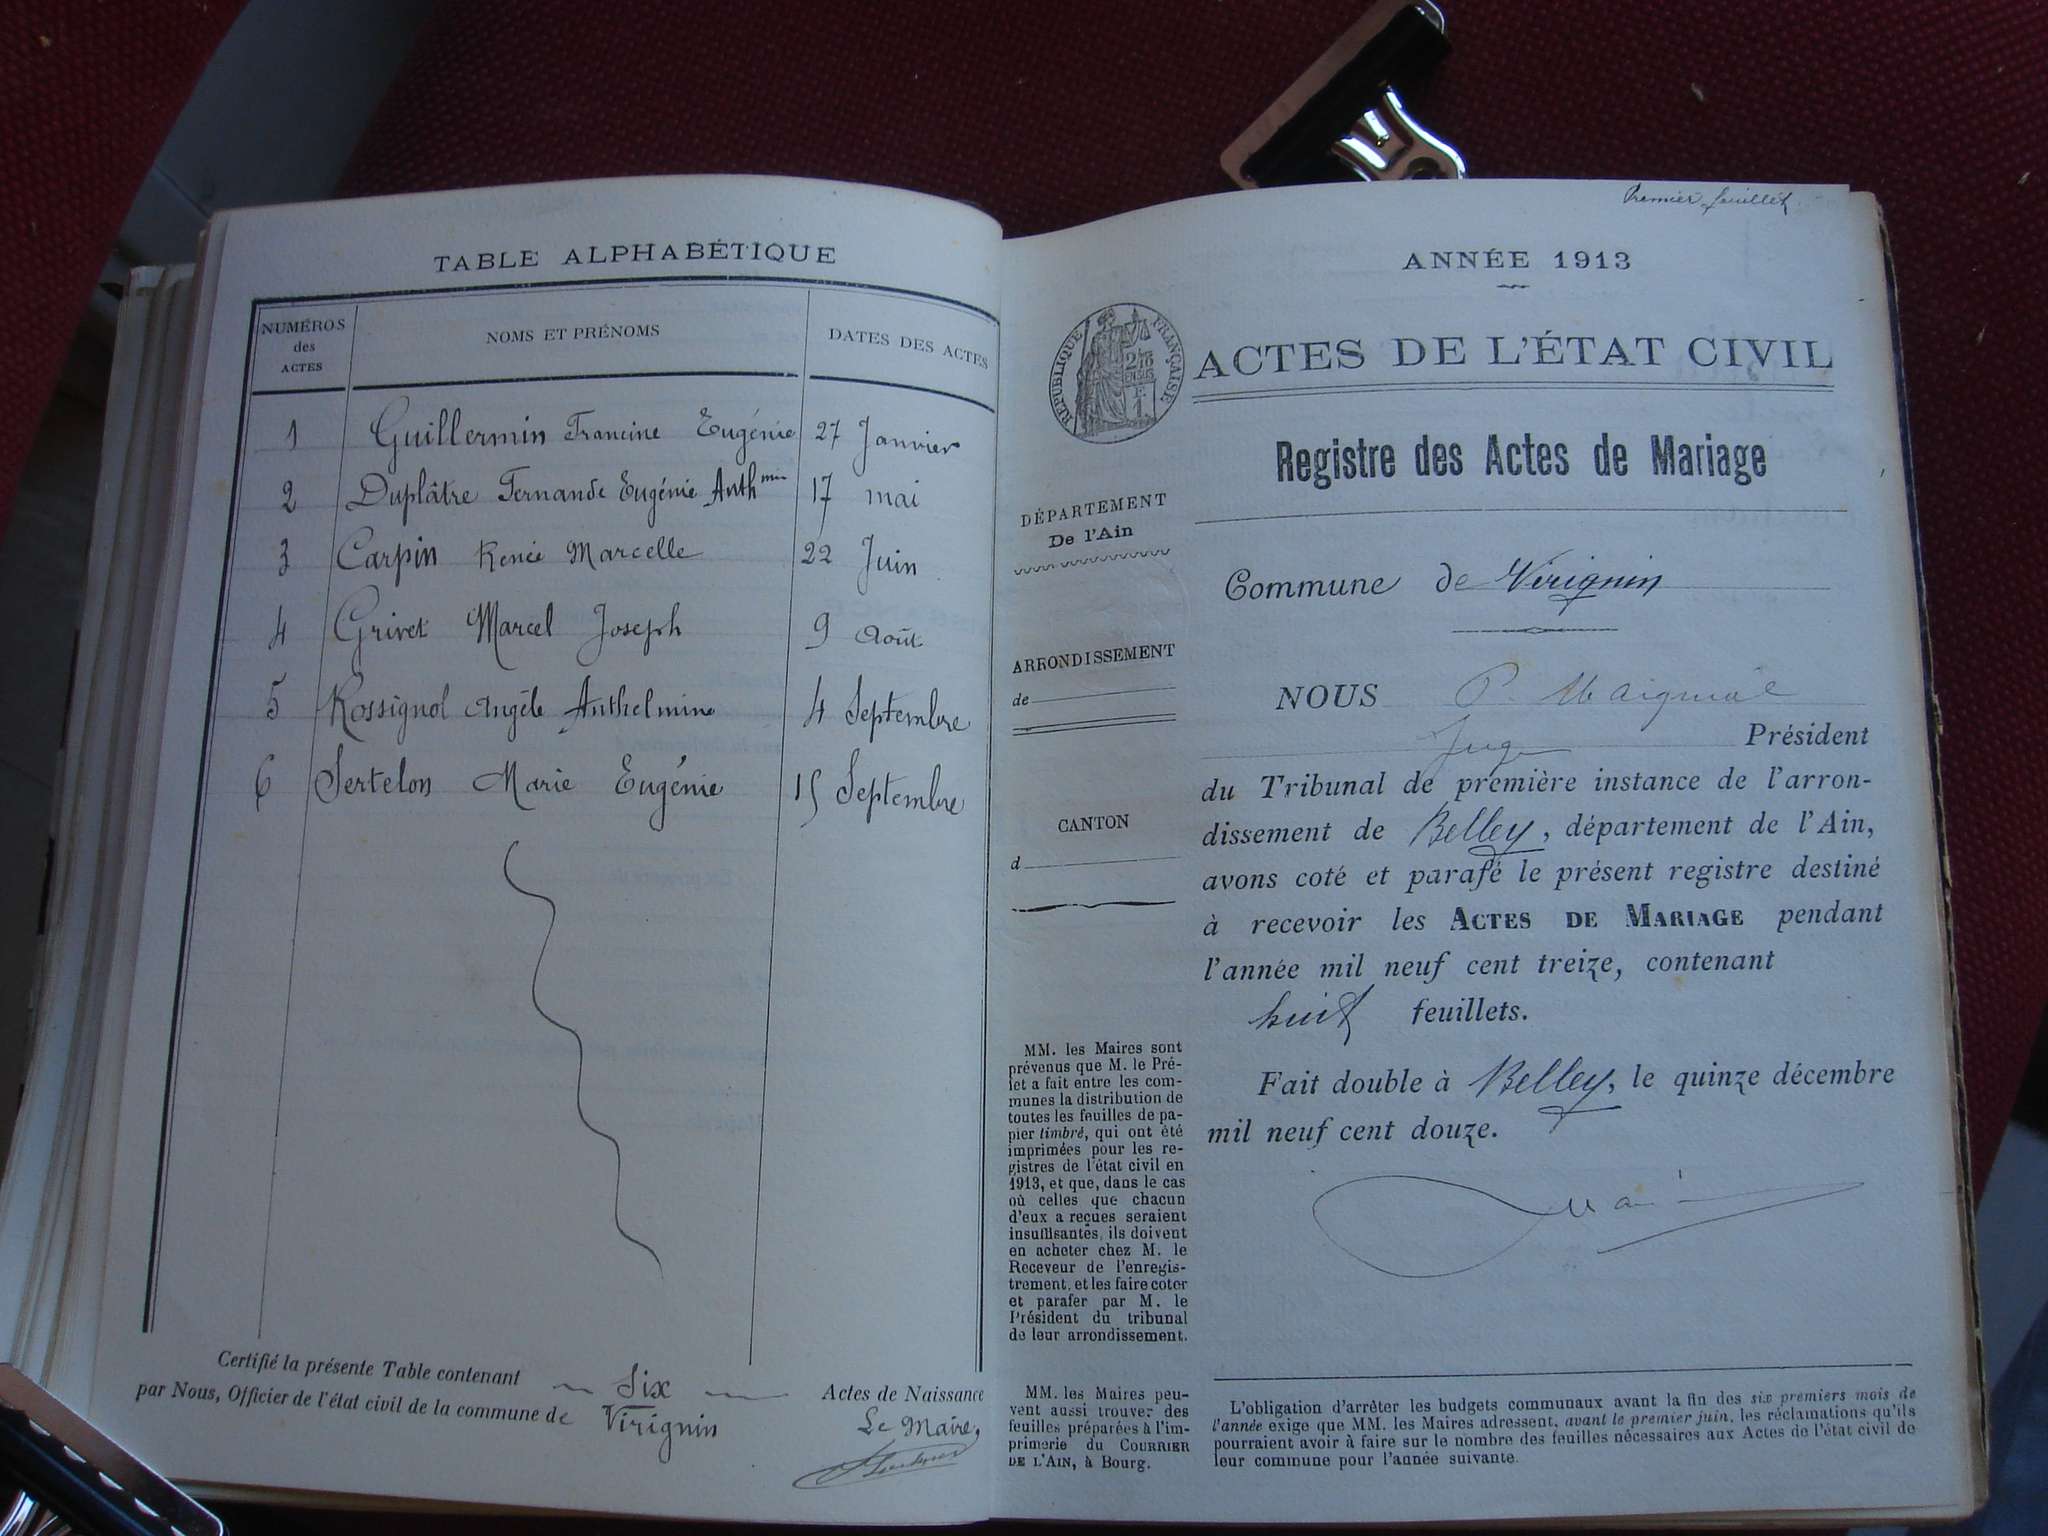 TABLE ALPHABÉTIQUE
NUMÉROS
des
ACTES
NOMS ET PRÉNOMS
DATES DES ACTES
1 Guillermin Francine Eugénie 27 Janvier
2 Duplâtre Fernande Eugénie Anth^mine 17 mai
3 Carpin Renée Marcelle 22 Juin
4 Grivet Marcel Joseph 9 Août
5 Rossignol Angèle Anthelmine 4 Septembre
6 Sertelon Marie Eugénie 15 Septembre
Certifié la présente Table contenant Six Actes de Naissance
par Nous, Officier de l'état civil de la commune de Virignin
Le Maire,
Premier feuillet
ANNÉE 1913
RÉPUBLIQUE FRANÇAISE
ACTES DE L'ÉTAT CIVIL
Registre des Actes de Mariage
DÉPARTEMENT
De l'Ain
ARRONDISSEMENT
de
CANTON
d
Commune de Virignin
NOUS P.
Juge Président
du Tribunal de première instance de l'arron-
dissement de Belley, département de l'Ain,
avons coté et parafé le présent registre destiné
à recevoir les ACTES DE MARIAGE pendant
l'année mil neuf cent treize, contenant
huit feuillets.
Fait double à Belley, le quinze décembre
mil neuf cent douze.
MM. les Maires sont
prévenus que M. le Pré-
fet a fait entre les com-
munes la distribution de
toutes les feuilles de pa-
pier timbré, qui ont été
imprimées pour les re-
gistres de l'état civil en
1913, et que, dans le cas
où celles que chacun
d'eux a reçues seraient
insuffisantes, ils doivent
en acheter chez M. le
Receveur de l'enregis-
trement, et les faire coter
et parafer par M. le
Président du tribunal
de leur arrondissement.
MM. les Maires peu-
vent aussi trouver des
feuilles préparées à l'im-
primerie du COURRIER
DE L'AIN, à Bourg.
L'obligation d'arrêter les budgets communaux avant la fin des six premiers mois de
l'année exige que MM. les Maires adressent, avant le premier juin, les réclamations qu'ils
pourraient avoir à faire sur le nombre des feuilles nécessaires aux Actes de l'état civil de
leur commune pour l'année suivante.